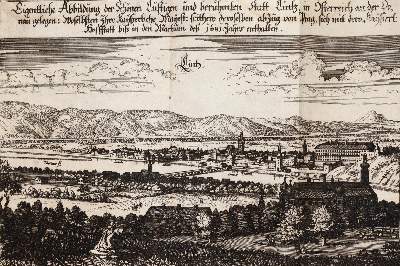 Eigentliche Abbildung der Schönen Lustigen und berühmbten Statt Lintz, in Osterreich an der Do
nau gelegen: Woselbsten Ihre Kaiserliche Mayest: seithero derselben abzug von Prag, sich mit dero Kaiserl
Hoffstatt bis in den Martium des 1681 Jahrs enthalten.
Lintz